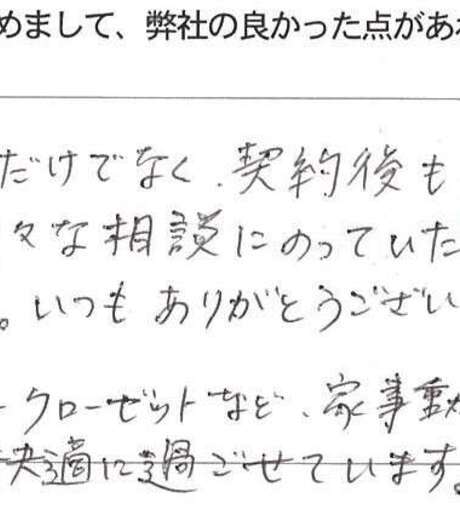 めまして、弊社の良かった点があ
だけでなく、契約後も
々な相談にのっていた
。いつもありがとうござい
ークローゼットなど、家事動
快適に過ごせています。